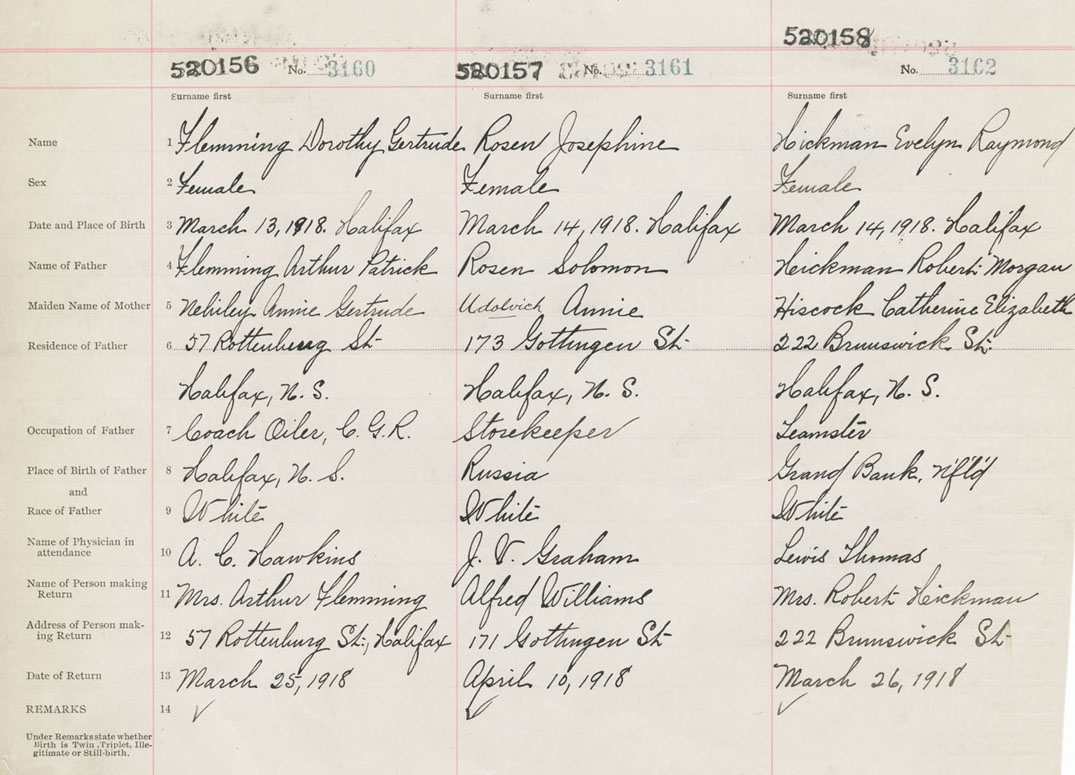 520158
520156 No. 3160 520157 No. 3161 No. 3162
Surname first Surname first Surname first
Name 1 Flemming Dorothy Gertrude Rosen Josephine Hickman Evelyn Raymond
Sex 2 Female Female Female
Date and Place of Birth 3 March 13, 1918. Halifax March 14, 1918. Halifax March 14, 1918. Halifax
Name of Father 4 Flemming Arthur Patrick Rosen Solomon Heickman Robert Morgan
Maiden Name of Mother 5 Annie Gertrude Annie Hiscock Catherine Elizabeth
Residence of Father 6 57 Rottenburg St. 173 Gottingen St. 222 Brunswick St.
Halifax, N. S. Halifax, N. S. Halifax, N. S.
Occupation of Father 7 Coach Oiler, C. G. R. Storekeeper Teamster
Place of Birth of Father 8 Halifax, N. S. Russia Grand Bank, Nf'l'd
and
Race of Father 9 White White White
Name of Physician in
attendance 10 A. C. Hawkins J. V. Graham Lewis Thomas
Name of Person making
Return 11 Mrs. Arthur Flemming Alfred Williams Mrs. Robert Heickman
Address of Person mak-
ing Return 12 57 Rottenburg St., Halifax 171 Gottingen St. 222 Brunswick St.
Date of Return 13 March 25, 1918 April 10, 1918 March 26, 1918
REMARKS 14 ✓ ✓ ✓
Under Remarks state whether
Birth is Twin, Triplet, Ille-
gitimate or Still-birth.